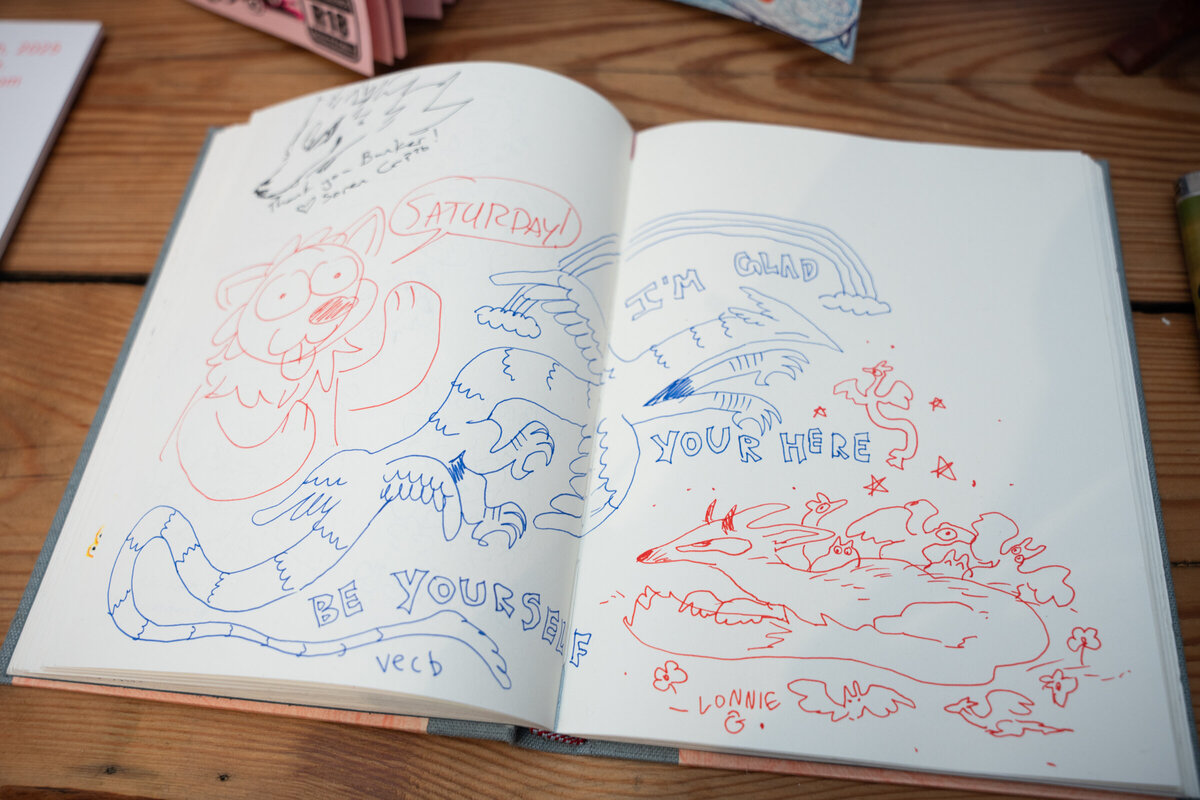 R18
2025
om
Thank you Bunker!
♡ Soren
SATURDAY!
I'M GLAD
YOUR HERE
BE YOURSELF
vecb
LONNIE
G.